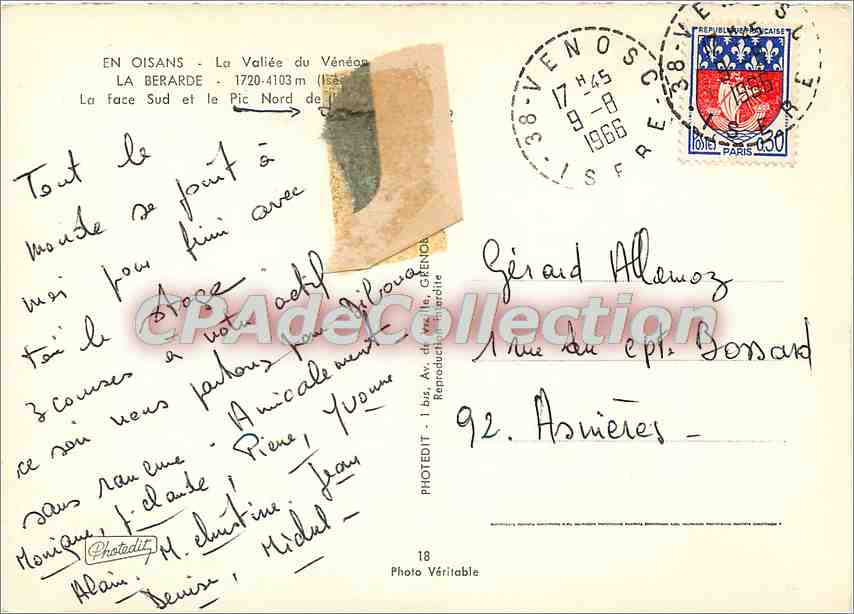 EN OISANS - La Vallée du Vénéon
LA BERARDE - 1720-4103 m (Isè
La face Sud et le Pic Nord de
Tout le
monde se joint à
moi pour finir avec
toi le stage
3 courses à votre actif
ce soir nous partons pour
sans rancune. Amicalement
Monique, J. Claude, Pierre, Yvonne
Alain, M. Christine, Jean
Denise, Michel -
Photedit
PHOTEDIT - 1 bis, Av. de Vizille, GRENOB
Reproduction interdite
18
Photo Véritable
38 - VENOSC
17 H 45
9 - 8
1966
ISERE
38 - VENOSC
1966
ISERE
REPUBLIQUE FRANÇAISE
POSTES PARIS 0,30
Gérard
1 rue du Cpt. Bossard
92. Asnières -
CPAdeCollection